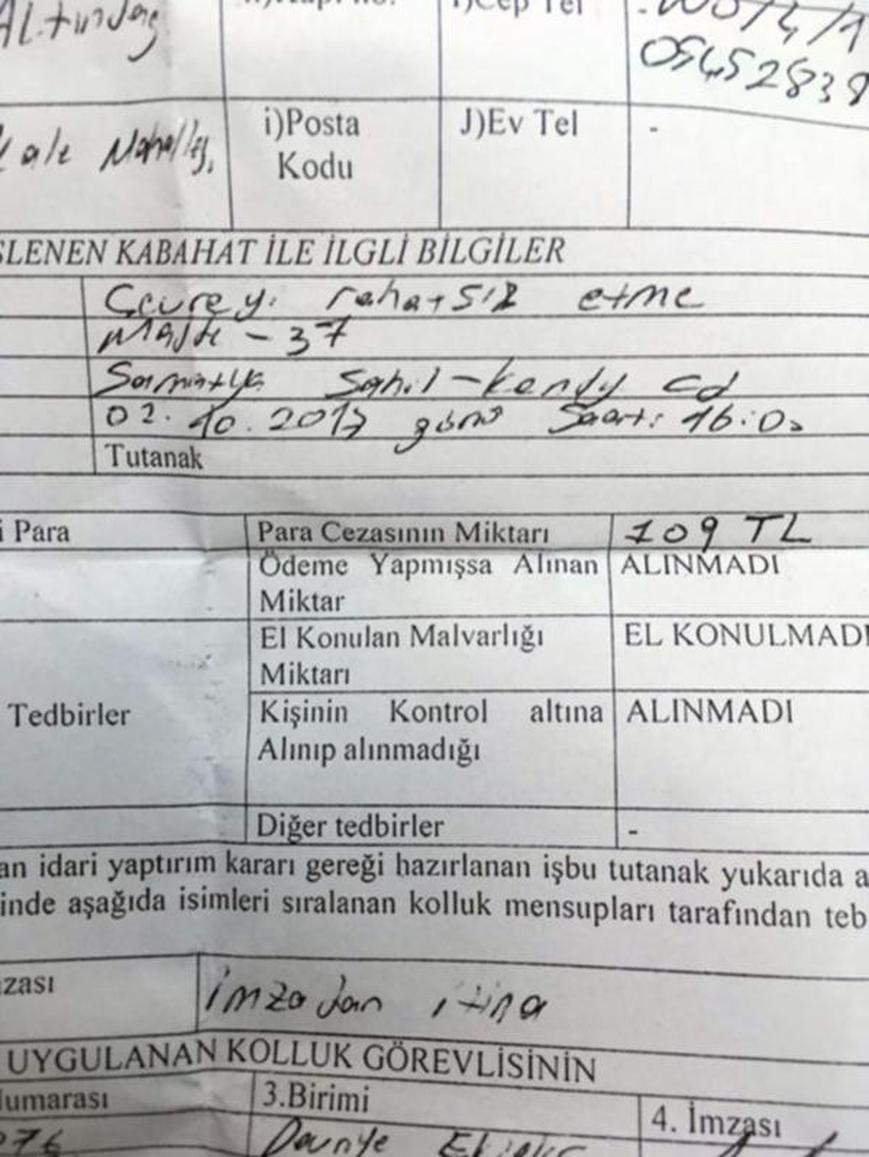 Altındağ
J)Cep Tel
0545283
Kale Mahallesi
i)Posta Kodu
J)Ev Tel
-
ŞLENEN KABAHAT İLE İLGLİ BİLGİLER
Çevreyi rahatsız etme
Madde - 37
Samatya Sahil-kendy cd
02.10.2017 günü Saat: 16:0
Tutanak
i Para
Para Cezasının Miktarı
109 TL
Ödeme Yapmışsa Alınan
Miktar
ALINMADI
El Konulan Malvarlığı
Miktarı
EL KONULMADI
Tedbirler
Kişinin Kontrol altına
Alınıp alınmadığı
ALINMADI
Diğer tedbirler
-
an idari yaptırım kararı gereği hazırlanan işbu tutanak yukarıda a
inde aşağıda isimleri sıralanan kolluk mensupları tarafından teb
zası
İmzadan itina
UYGULANAN KOLLUK GÖREVLİSİNİN
umarası
3.Birimi
4. İmzası
076
Devriye